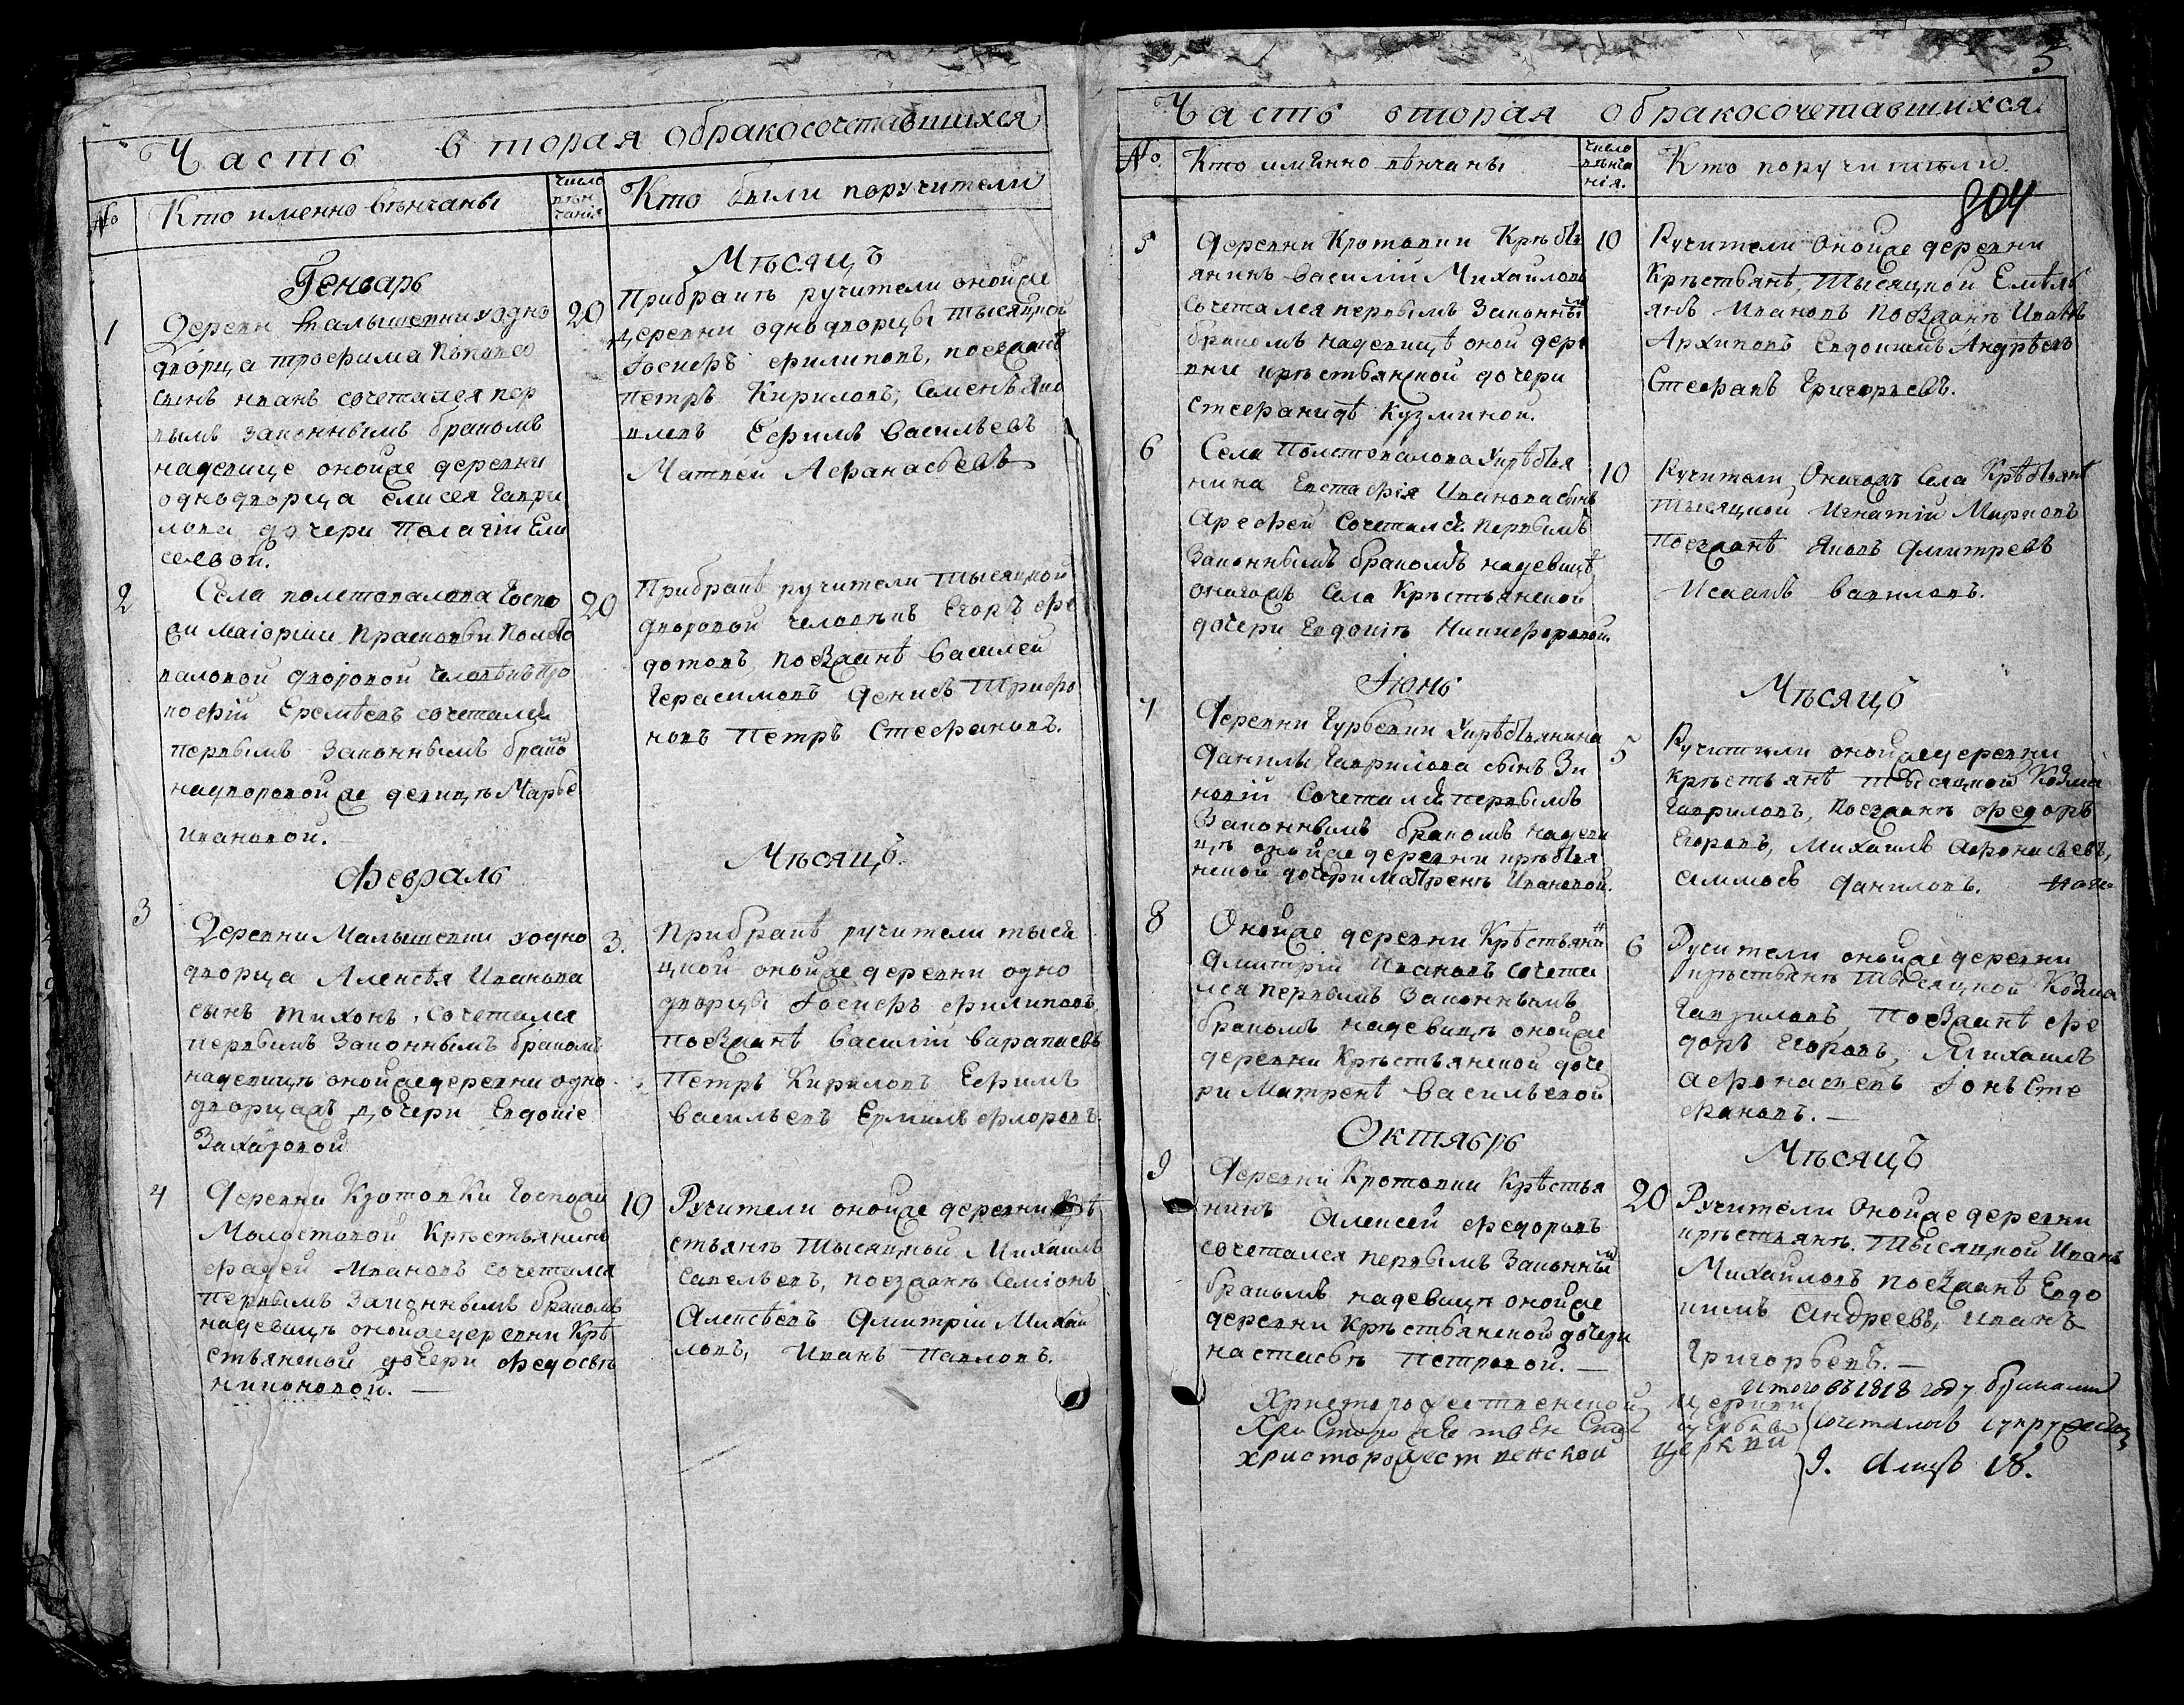 Часть вторая обракосочетавшихся
№ Кто именно венчаны число венчания Кто были поручители
Генварь Мѣсяцъ
1 Деревн малышевки уодно 20
дворца трофима Попова
сынъ иванъ сочетался пер
вымъ законнымъ бракомъ
надевице онойже деревни
однодворца елисея Гаври
лова дочери Пелагiи Ели
сеевой.
Прибракѣ ручители онойже
деревни однодворцы тысяцкой
Iосифъ филиповъ, поезжанѣ
петръ Кириловъ, Семенъ Яко
влевъ Ефимъ васильевъ
Матвей Афанасьевъ
2 Села полстовалова Госпо 20
жи маiорши Прасковьи Полсто
валовой дворовой человѣкъ Про
кофiй Еремѣевъ сочетался
первымъ законнымъ бракомъ
надворовойже девицѣ Марье
ивановой.
Прибракѣ ручители тысяцкой
дворовой человѣкъ Егоръ фе
дотовъ, поезжанѣ василей
Герасимовъ денисъ Трифо
новъ Петръ Стефановъ.
Февраль Мѣсяцъ.
3 Деревни Малышевки уодно 3.
дворца Алексѣя Иванова
сынъ тихонъ, сочетался
первымъ законнымъ бракомъ
надевицѣ онойжедеревни одно
дворцахъ дочери Евдокiе
Захаровой
Прибракѣ ручители тыся
цкой онойже деревни одно
дворцы Iосифъ филиповъ,
поезжанѣ василiй варапаевъ
Петръ Кириловъ Ефимъ
васильевъ Ермилъ флоровъ.
4 Деревни Кротовки Госпожи 10
Молостовой Крѣстьянинъ
фадей Ивановъ сочетался
первымъ законнымъ бракомъ
надевицѣ онойжедеревни Крѣ
стьянской дочери федосьѣ
никоновой.
Ручители онойже деревни Крѣ
стьянѣ тысяцкой Михаилъ
савельевъ, поезжанѣ Семiонъ
Алексѣевъ дмитрiй Михаи
ловъ, Иванъ Павловъ.
5
Часть вторая обракосочетавшихся
№ Кто имянно вѣнчаны число вѣнчанiя. Кто поручители.
804
5 Деревни Кротовки Крѣсть 10
янинъ василiй Михаиловъ
сочетался первымъ законным
бракомъ надевицѣ оной дере
вни крѣстьянской дочери
стефанидѣ Кузминой.
Ручители онойже деревни
Крѣстьянѣ, тысяцкой Емѣль
янъ Ивановъ поезжанѣ Иванъ
Архиповъ Евдокимъ Андрѣевъ
Стефанъ Григорьевъ.
6 Села Полстовалова укрѣстья 10
нина Евстафiя Иванова сынъ
Арефей сочетался первымъ
законнымъ бракомъ надевицѣ
оногожъ села Крѣстьянской
дочери Евдокiѣ Никифоровой.
Ручители оногожъ села Крѣстьянѣ
тысяцкой Игнатiй Марковъ
поезжанѣ Яковъ дмитревъ
Исаакъ вавиловъ.
Iюнь Мѣсяцъ
7 Деревни Гурьевки укрѣстьянина 5
данилы Гаврилова сынъ Зи
новiй сочетался первымъ
законнымъ бракомъ надеви
цѣ онойже деревни крѣстья
нской дочери матренѣ Ивановой.
Ручители онойжедеревни
Крѣстьянѣ тысяцкой Козма
Гавриловъ, поезжанѣ федоръ
Егоровъ, Михаилъ афонасьевъ,
аммосъ даниловъ.
8 Онойже деревни Крѣстьянин 6
дмитрiй Ивановъ сочета
лся первымъ законнымъ
бракомъ надевицѣ онойже
деревни Крѣстьянской доче
ри Матренѣ васильевой
Ручители онойже деревни
крѣстьянѣ тысяцкой Козма
Гавриловъ, поезжанѣ фе
доръ Егоровъ, Михаилъ
афонасьевъ Iонъ Сте
фановъ.—
Октябрь Мѣсяцъ
9 Деревни Кротовки Крѣстья 20
нинъ Алексей федоровъ
сочетался первымъ законным
бракомъ надевицѣ онойже
деревни Крѣстьянской дочери
настасьѣ Петровой.—
Ручители онойже деревни
крѣстьянѣ. тысяцкой Иванъ
Михаиловъ поезжанѣ Евдо
кимъ Андреевъ, иванъ
Григорьевъ.—
Итого въ 1818 году браками
сочеталось супружест
9. А лицъ 18.
Христорожественской церкви
христорожественской церкви